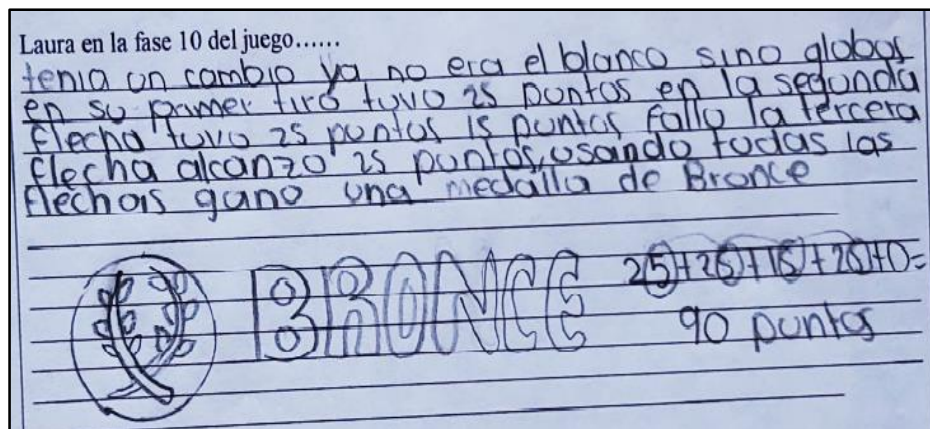 Laura en la fase 10 del juego……
tenia un cambio ya no era el blanco sino globos
en su primer tiro tuvo 25 puntos en la segunda
flecha tuvo 25 puntos 15 puntos fallo la tercera
flecha alcanzo 25 puntos, usando todas las
flechas gano una medalla de Bronce
BRONCE 25+25+15+25+0=
90 puntos